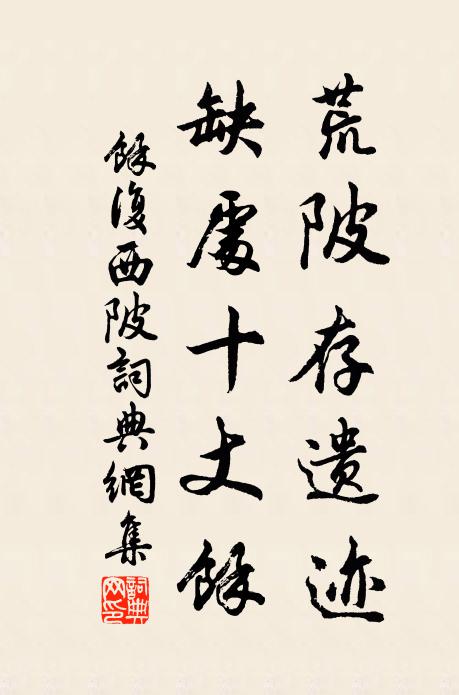 荒陂存遺迹
缺處十丈餘
餘復西陂詞典網集
詞典网印